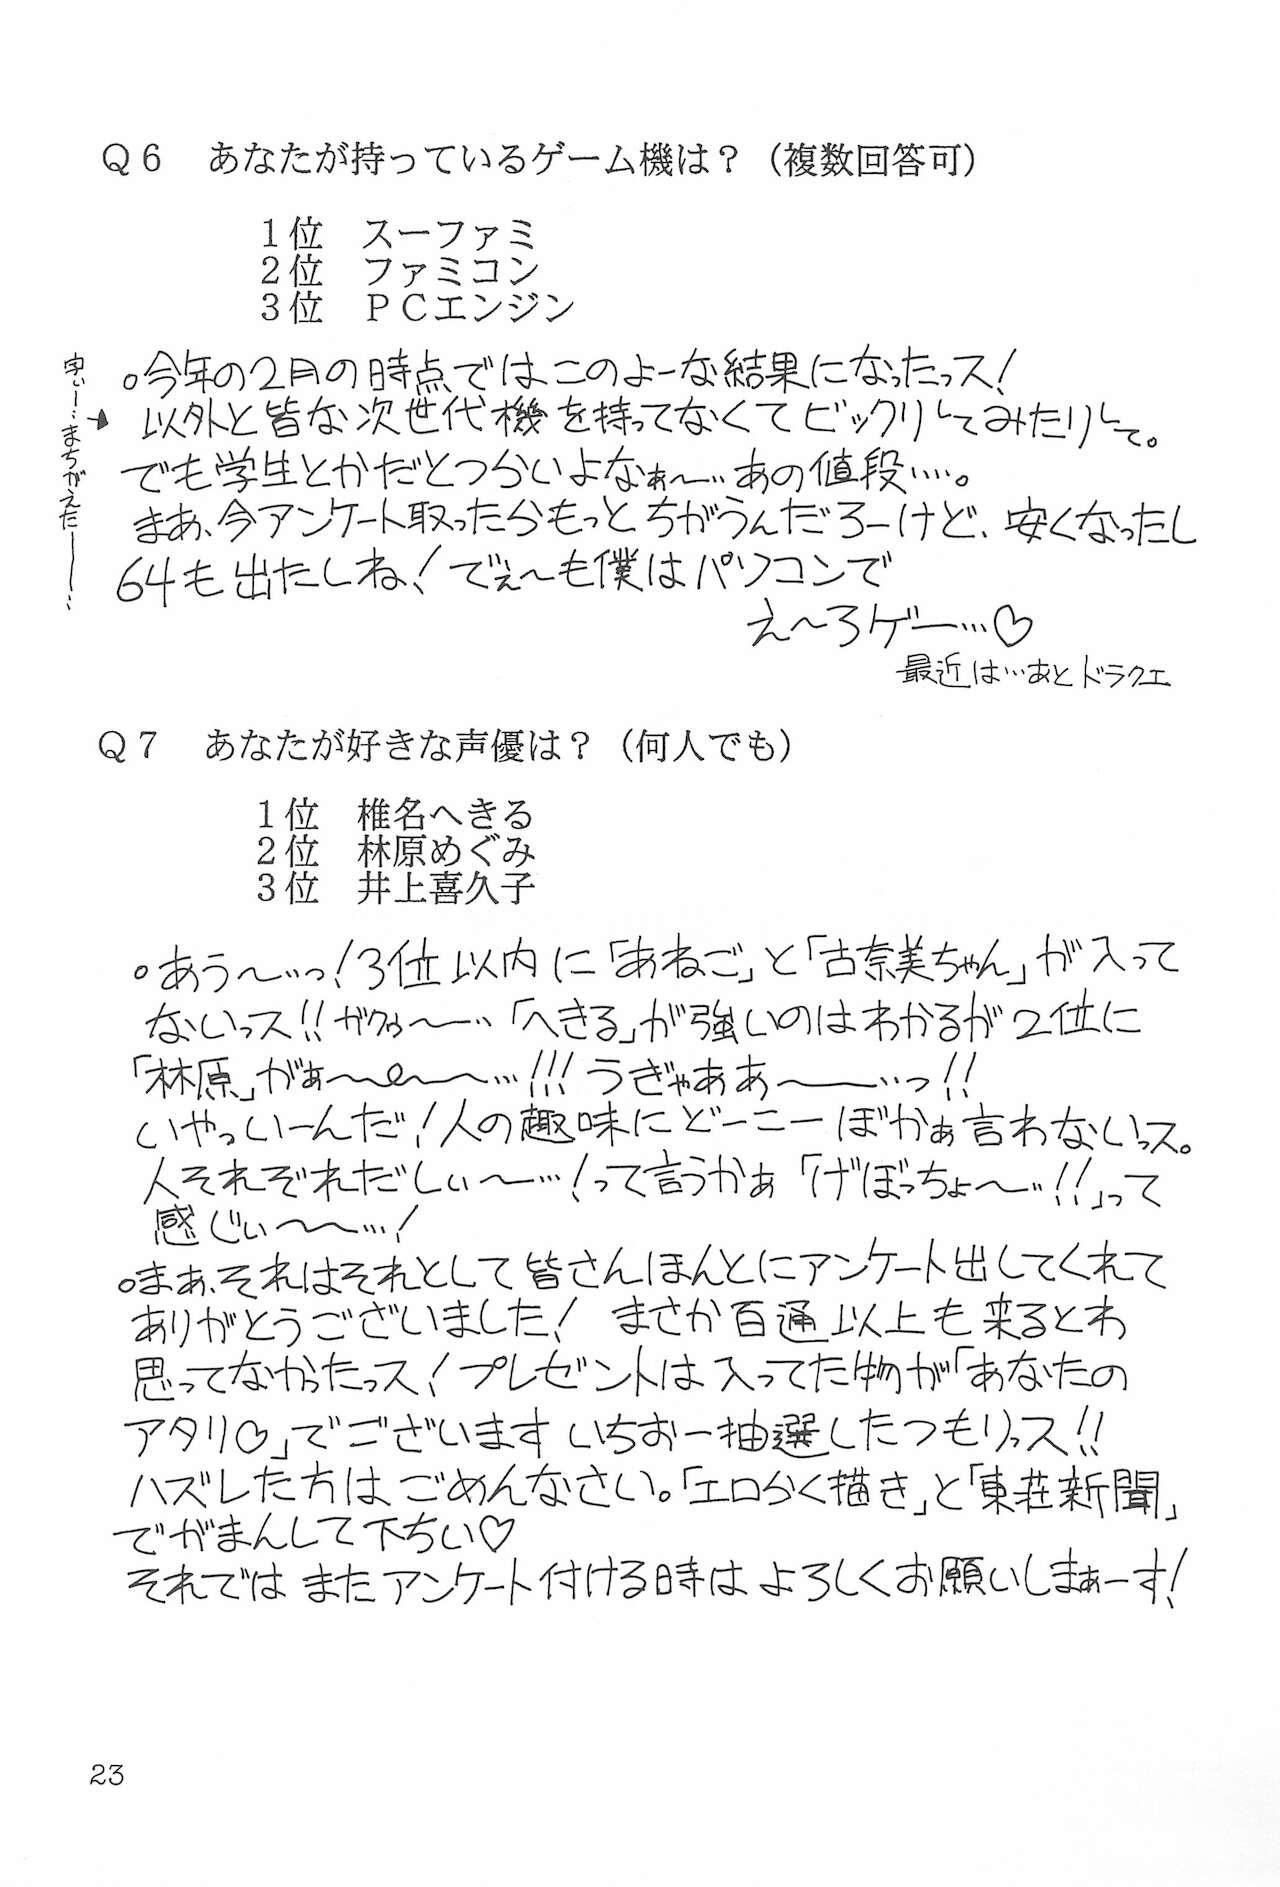 Ｑ６　あなたが持っているゲーム機は？（複数回答可）
１位　スーファミ
２位　ファミコン
３位　ＰＣエンジン
。今年の２月の時点ではこのよーな結果になったっス！
以外と皆な次世代機を持ってなくてビックリしてみたりして。
字ぃー…まちがえたー…
でも学生とかだとつらいよなぁ〜…あの値段…。
まあ、今アンケート取ったらもっとちがうんだろーけど、安くなったし
64も出たしね！でぇ〜も僕はパソコンで
え〜ろゲー…♡
最近は…あとドラクエ
Ｑ７　あなたが好きな声優は？（何人でも）
１位　椎名へきる
２位　林原めぐみ
３位　井上喜久子
。あう〜…っ！3位以内に「あねご」と「古奈美ちゃん」が入って
ないっス!!ガクゥ〜…「へきる」が強いのはわかるが2位に
「林原」がぁ〜〜…!!!うぎゃああ〜…っ!!
いやっいーんだ！人の趣味にどーこーぼかぁ言わないっス。
人それぞれだしぃ〜…！って言うかぁ「げぼっちょ〜…!!」って
感じぃ〜…！
。まぁ、それはそれとして皆さんほんとにアンケート出してくれて
ありがとうございました！まさか百通以上も来るとわ
思ってなかったっス！プレゼントは入ってた物が「あなたの
アタリ♡」でございます いちおー抽選したつもりっス!!
ハズレた方はごめんなさい。「エロらく描き」と「東荘新聞」
でがまんして下ちい♡
それではまたアンケート付ける時はよろしくお願いしまぁーす！
23